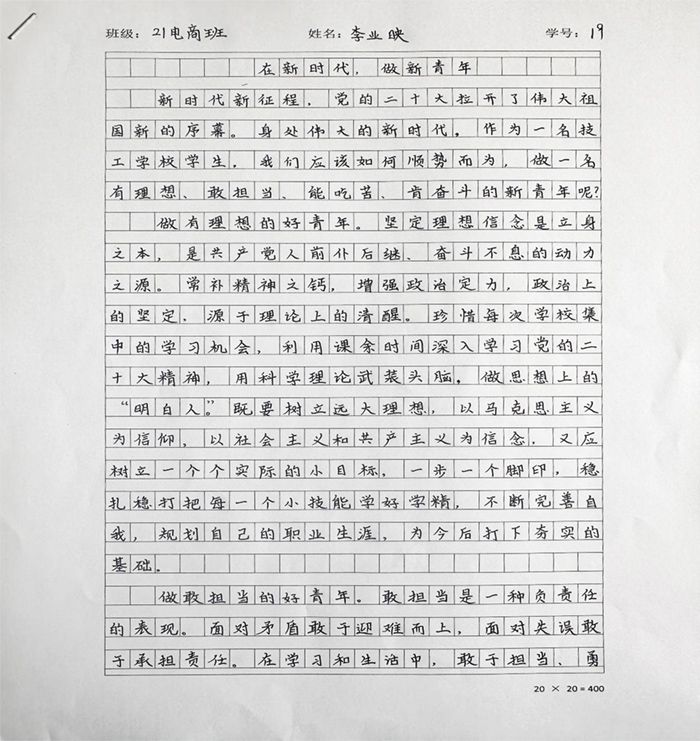 班级：21电商班 姓名：李业映 学号：19
在新时代，做新青年
新时代新征程，党的二十大拉开了伟大祖
国新的序幕。身处伟大的新时代。作为一名技
工学校学生，我们应该如何顺势而为，做一名
有理想、敢担当、能吃苦、肯奋斗的新青年呢？
做有理想的好青年。坚定理想信念是立身
之本，是共产党人前仆后继、奋斗不息的动力
之源。常补精神之钙，增强政治定力，政治上
的坚定、源于理论上的清醒。珍惜每次学校集
中的学习机会，利用课余时间深入学习党的二
十大精神，用科学理论武装头脑。做思想上的
“明白人”。既要树立远大理想，以马克思主义
为信仰，以社会主义和共产主义为信念，又应
树立一个个实际的小目标，一步一个脚印，稳
扎稳打把每一个小技能学好学精，不断完善自
我，规划自己的职业生涯，为今后打下夯实的
基础。
做敢担当的好青年。敢担当是一种负责任
的表现。面对矛盾敢于迎难而上，面对失误敢
于承担责任。在学习和生活中，敢于担当、勇
20 × 20 = 400